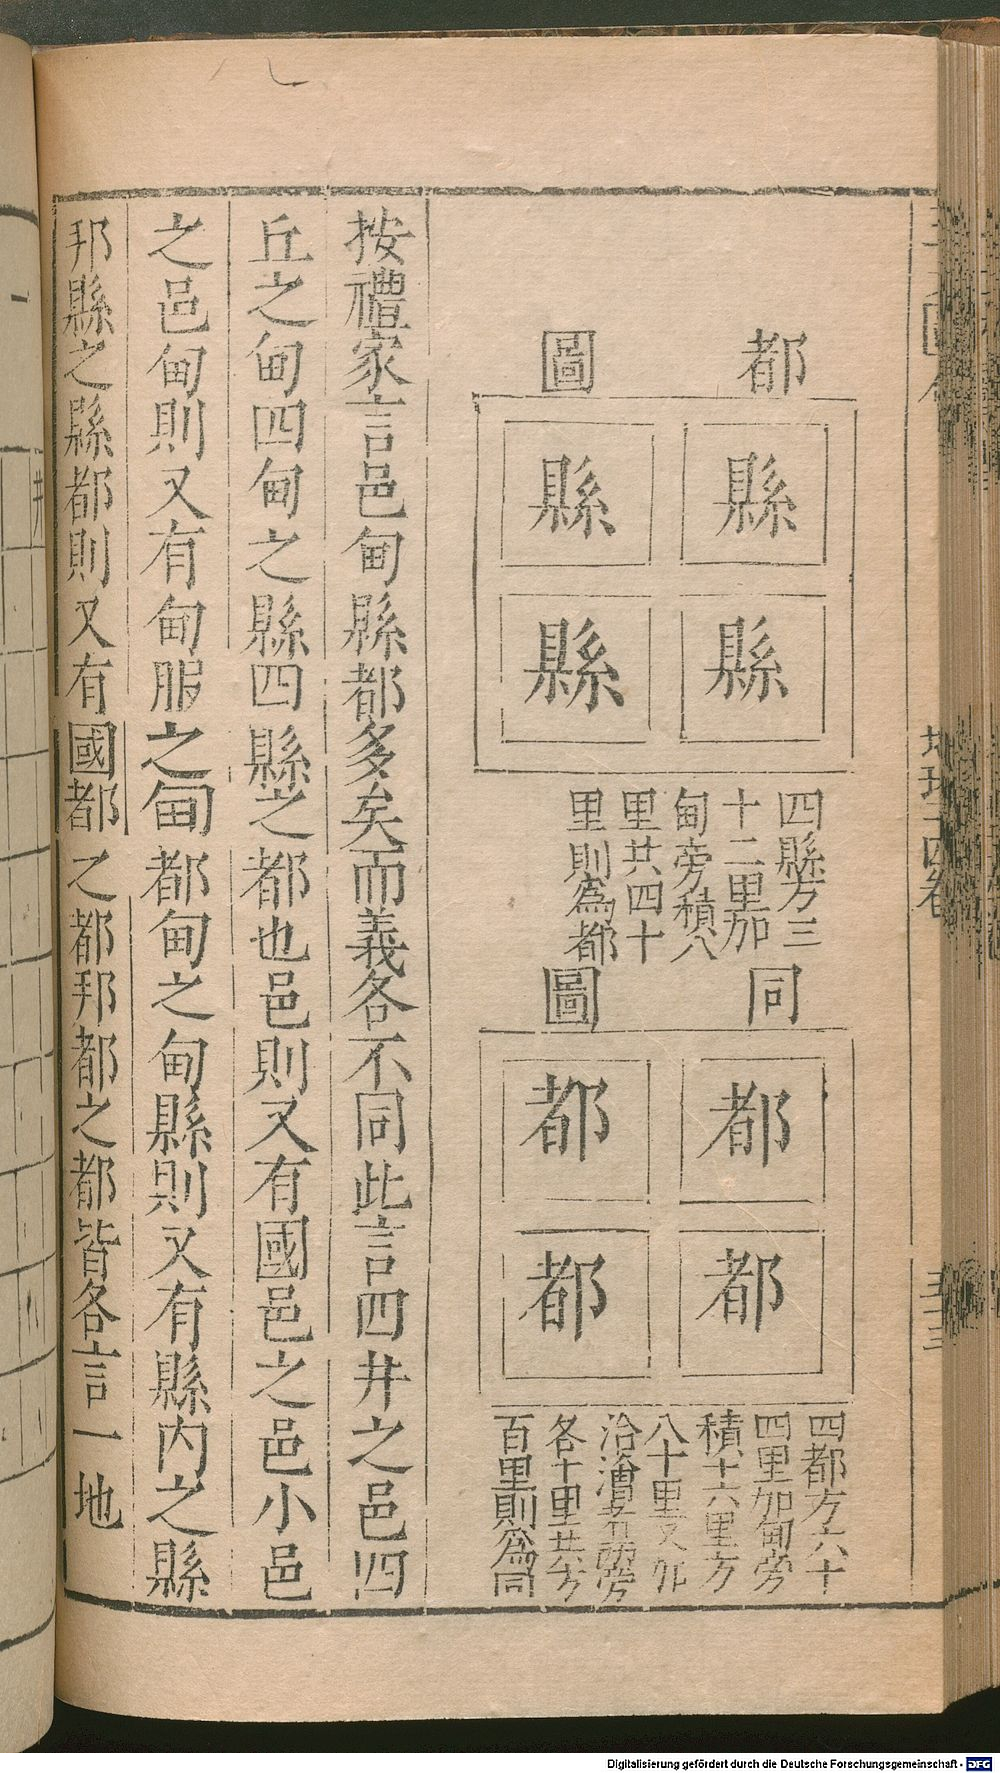 都圖
縣 縣
縣 縣
四縣方三
十二里加
甸旁積八
里共四十
里則爲都
同圖
都 都
都 都
四都方六十
四里加甸旁
積十六里方
八十里又加
治洫旁
各十里共方
百里則爲同
按禮家言邑甸縣都多矣而義各不同此言四井之邑四
丘之甸四甸之縣四縣之都也邑則又有國邑之邑小邑
之邑甸則又有甸服之甸都甸之甸縣則又有縣内之縣
邦縣之縣都則又有國都之都邦都之都皆各言一地
Digitalisierung gefördert durch die Deutsche Forschungsgemeinschaft - DFG